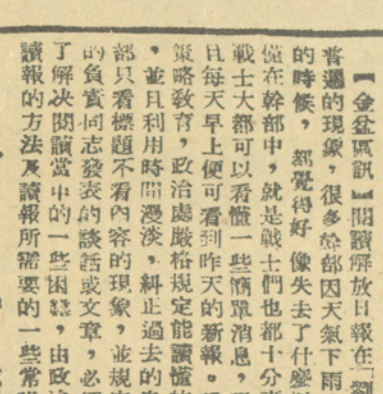 【金盆區訊】閱讀解放日報在「劉
普遍的現象，很多幹部因天氣下雨
的時候，都覺得好像失去了什麼
僅在幹部中，就是戰士們也都十分
戰士大都可以看懂一些簡單消息，
且每天早上便可看到昨天的新報。
策略敎育，政治處嚴格規定能讀懂
，並且利用時間漫談，糾正過去的
部只看標題不看內容的現象，並規
的負責同志發表的談話或文章，必
了解决閱讀當中的一些困難，由政
讀報的方法及讀報所需要的一些常